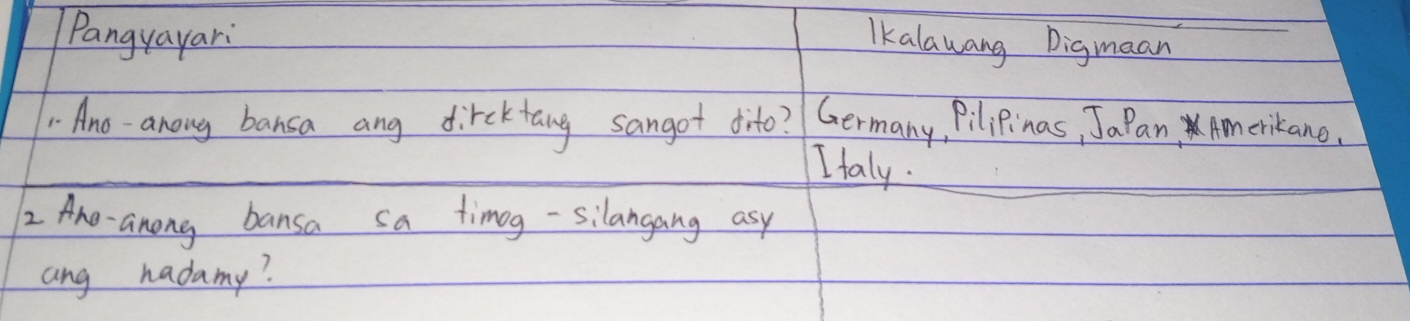 Pangyayari
Ikalawang Digmaan
1. Ano-anong bansa ang direktang sangot dito?
Germany, Pilipinas, Japan, Amerikano,
Italy.
2 Ano-anong bansa sa timog-silangang asy
ang nadamy?